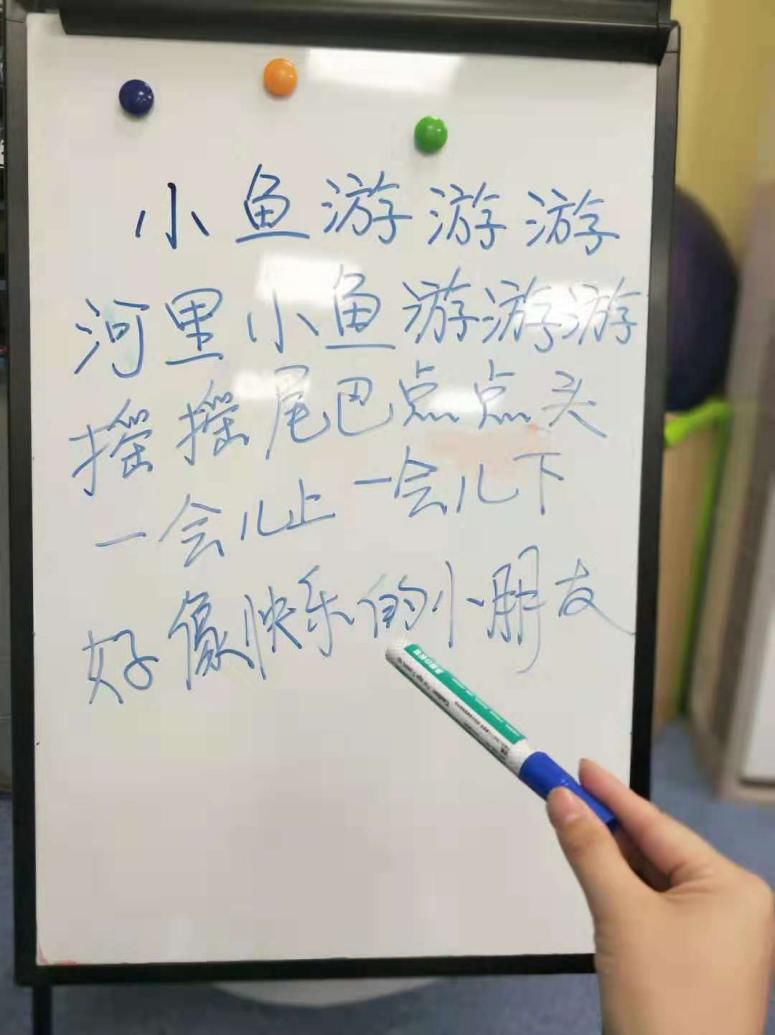 小鱼游游游
河里小鱼游游游
摇摇尾巴点点头
一会儿上一会儿下
好像快乐的小朋友